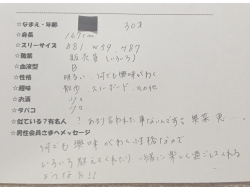 ☆なまえ・年齢 30才
☆身長 167cm
☆スリーサイズ B81 W59 H87
☆職業 販売員
☆血液型 B
☆性格 明るい 何でも興味がわく
☆趣味 散歩、スノーボード
☆お酒 少々
☆タバコ 少々
☆似ている？有名人 ！
☆男性会員さまへメッセージ
何でも興味がわく性格なので
いろいろ教えてくれたり 一緒に楽しく過ごしてくれる